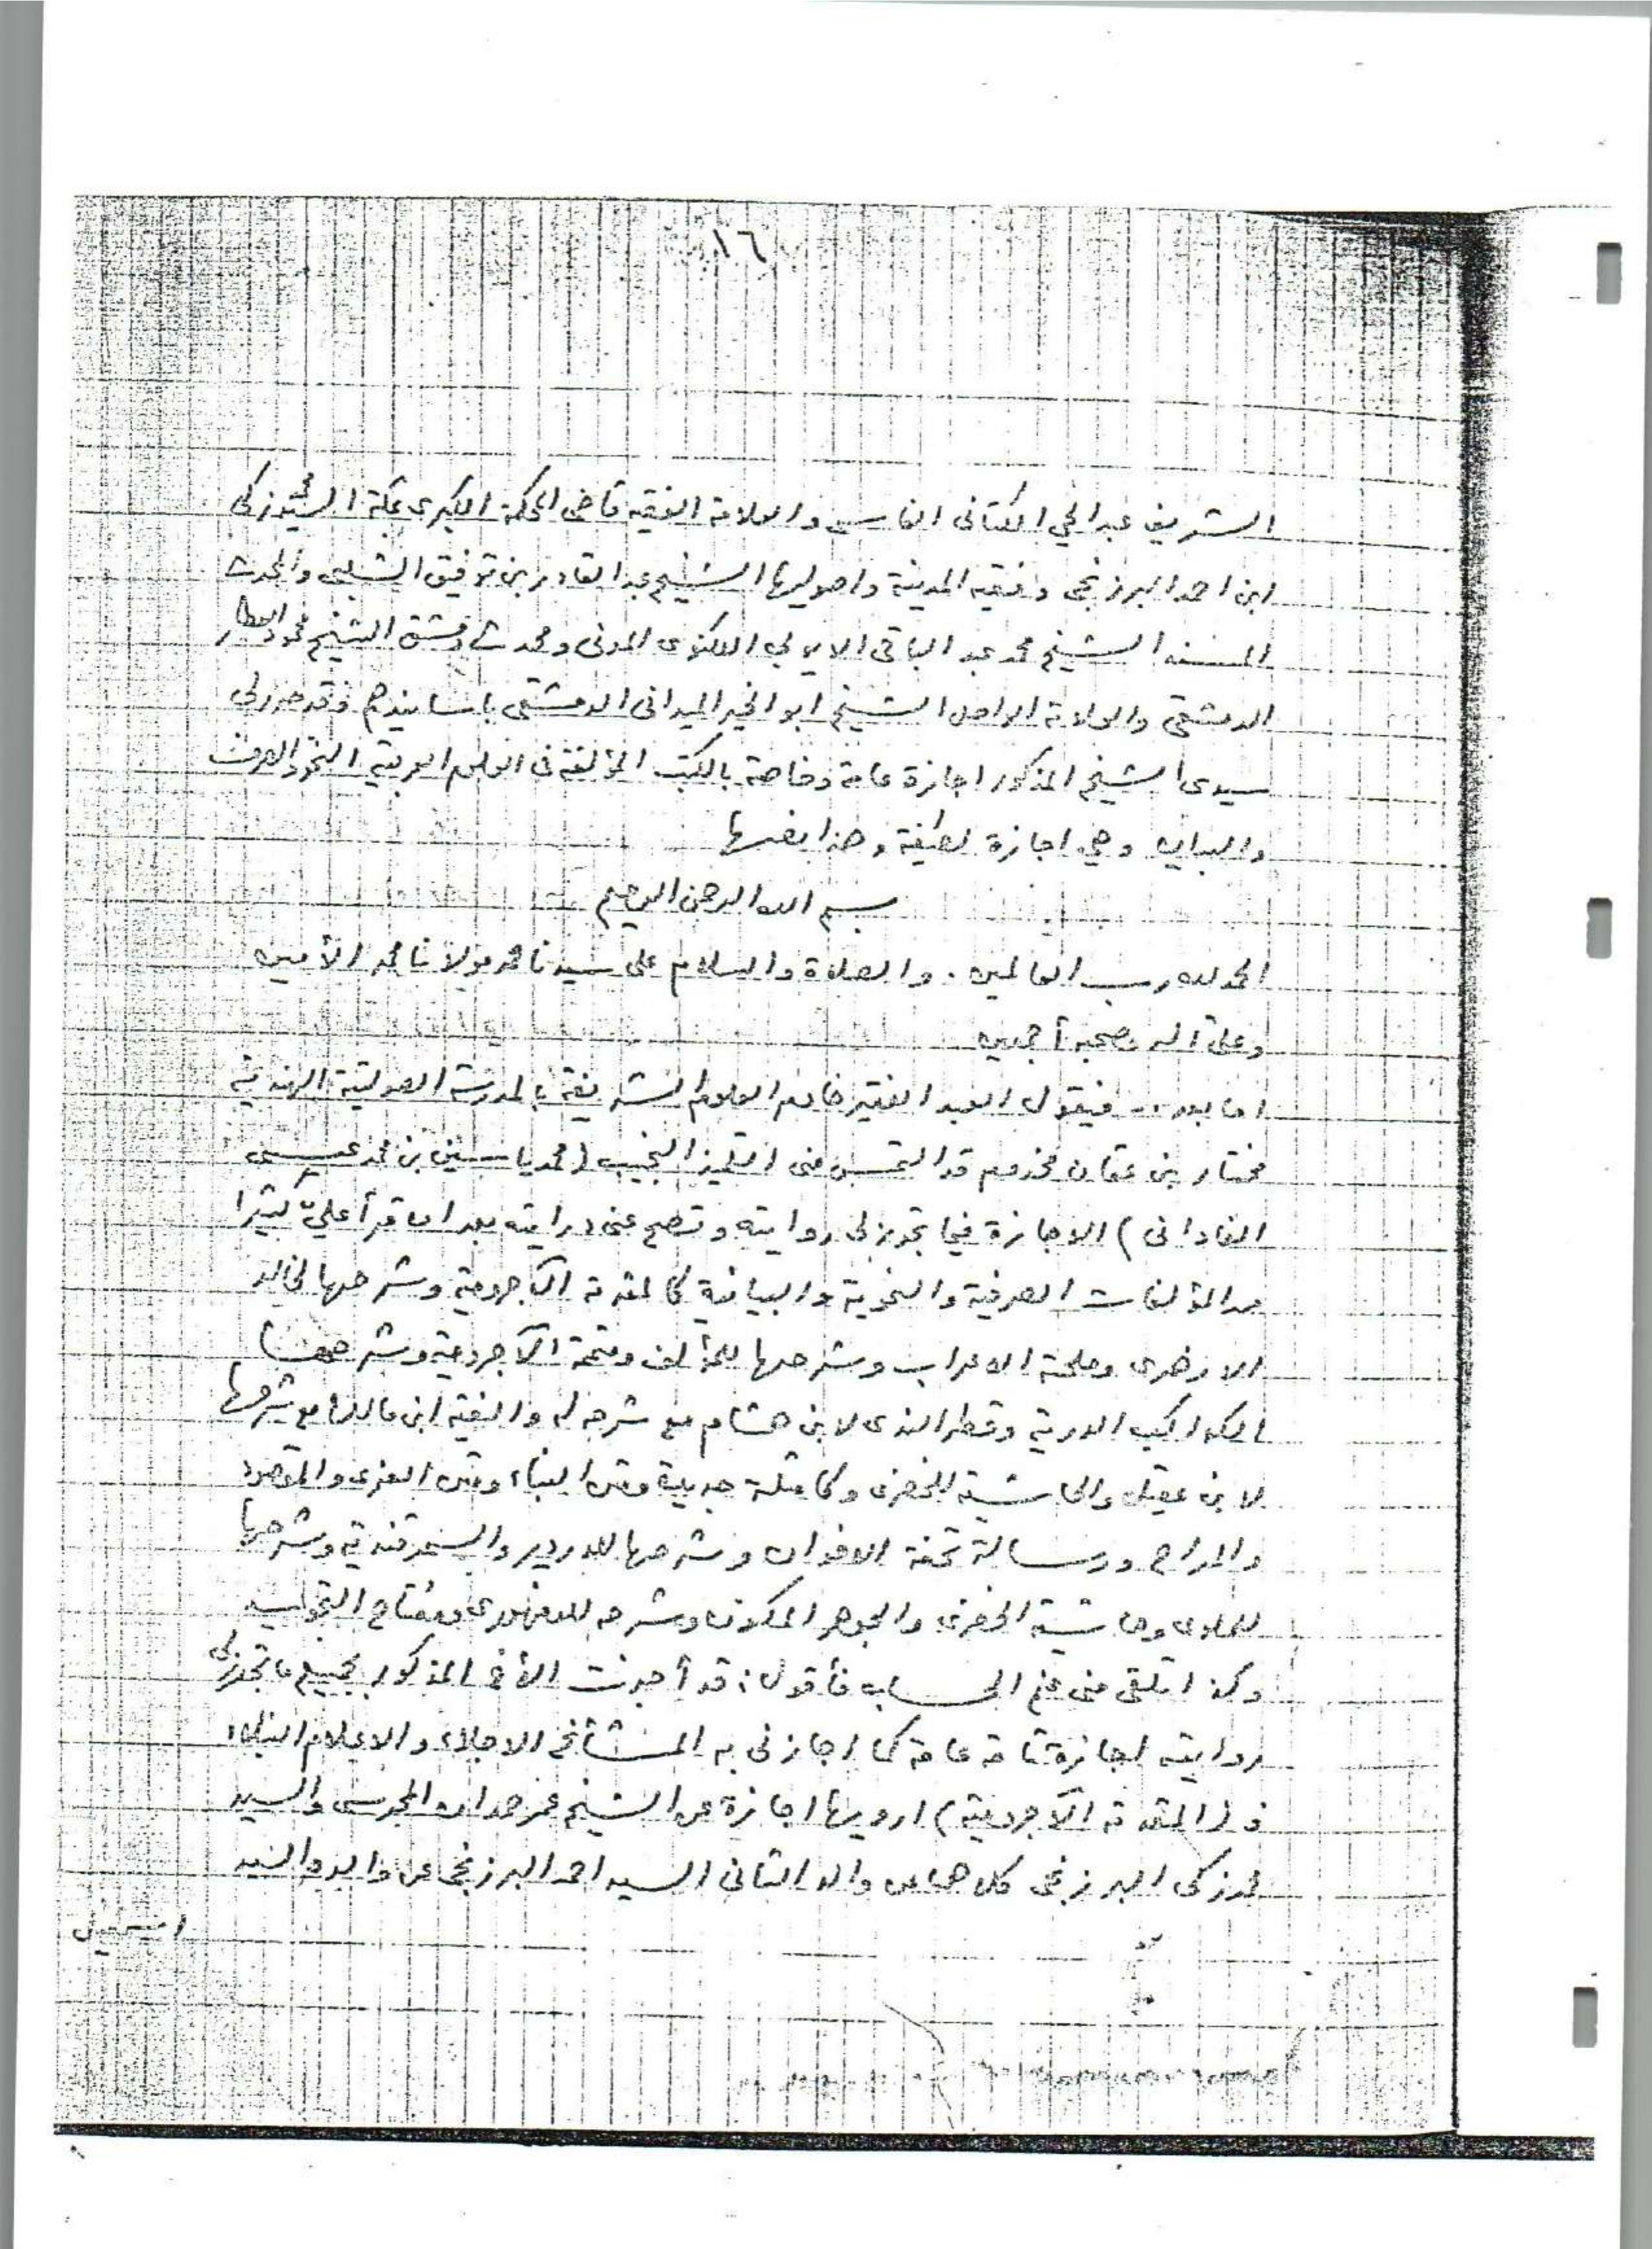 ١٦
الشريف عبد الحي الكتاني الفاسي والعلامة الفقيه قاضي المحكمة الكبرى بمكة السيد محمد زكي
ابن احمد البرزنجي وفقيه المدينة واصوليها الشيخ عبد القادر بن توفيق الشلبي والمحدث
المسند الشيخ محمد عبد الباقي الايوبي اللكنوى المدني ومحدث دمشق الشيخ محمود العطار
الدمشقي والعلامة الشيخ ابو الخير الميداني الدمشقي باسانيدهم وقد حرر لي
سيدى الشيخ المذكور اجازة عامة وخاصة بالكتب المؤلفة في العلوم العربية النحو والصرف
والبيان وهي اجازة لطيفة وهذا نصها
بسم الله الرحمن الرحيم
الحمد لله رب العالمين . والصلاة والسلام على سيدنا محمد مولانا محمد الأمين
وعلى آله وصحبه أجمعين
اما بعد .. فيقول العبد الفقير خادم العلوم الشريفة بالمدرسة الصولتية الهندية
مختار بن عثمان مخدوم قد التمس منى التلميذ النجيب (محمد ياسين بن محمد عيسى
الفاداني) الاجازة فيما تجوز لى روايته وتصح عنى درايته بعد ان قرأ عليّ كثيرا
من المؤلفات الصرفية والنحوية والبيانية كالمقدمة الآجرومية وشرحها لخالد
الازهرى وملحة الاعراب وشرحها للمؤلف ومتممة الآجرومية وشرحها
الكواكب الدرية وقطر الندى لابن هشام مع شرحه له والفية ابن مالك مع شرحها
لابن عقيل والحاشية للخضرى وكامثلة جديدة ومتن البناء ومتن العزى والمقصود
والمراح ورسالة تحفة الاخوان وشرحها للدردير والسمرقندية وشرحها
للملوى وحاشية الخضرى والجوهر المكنون وشرحه للدمنهورى ومفتاح
وكذا تلقى منى علم الحساب فأقول: قد أجزت الأخ المذكور بجميع ما تجوز لى
روايته اجازة تامة عامة كما اجازنى به المشائخ الاجلاء والاعلام النبلاء
فـ (المقدمة الآجرومية) ارويها اجازة عن الشيخ عمر حمدان المحرسى والسيد
محمد زكى البرزنجى كلاهما عن والد الثانى السيد احمد البرزنجى عن والده السيد
اسمعيل